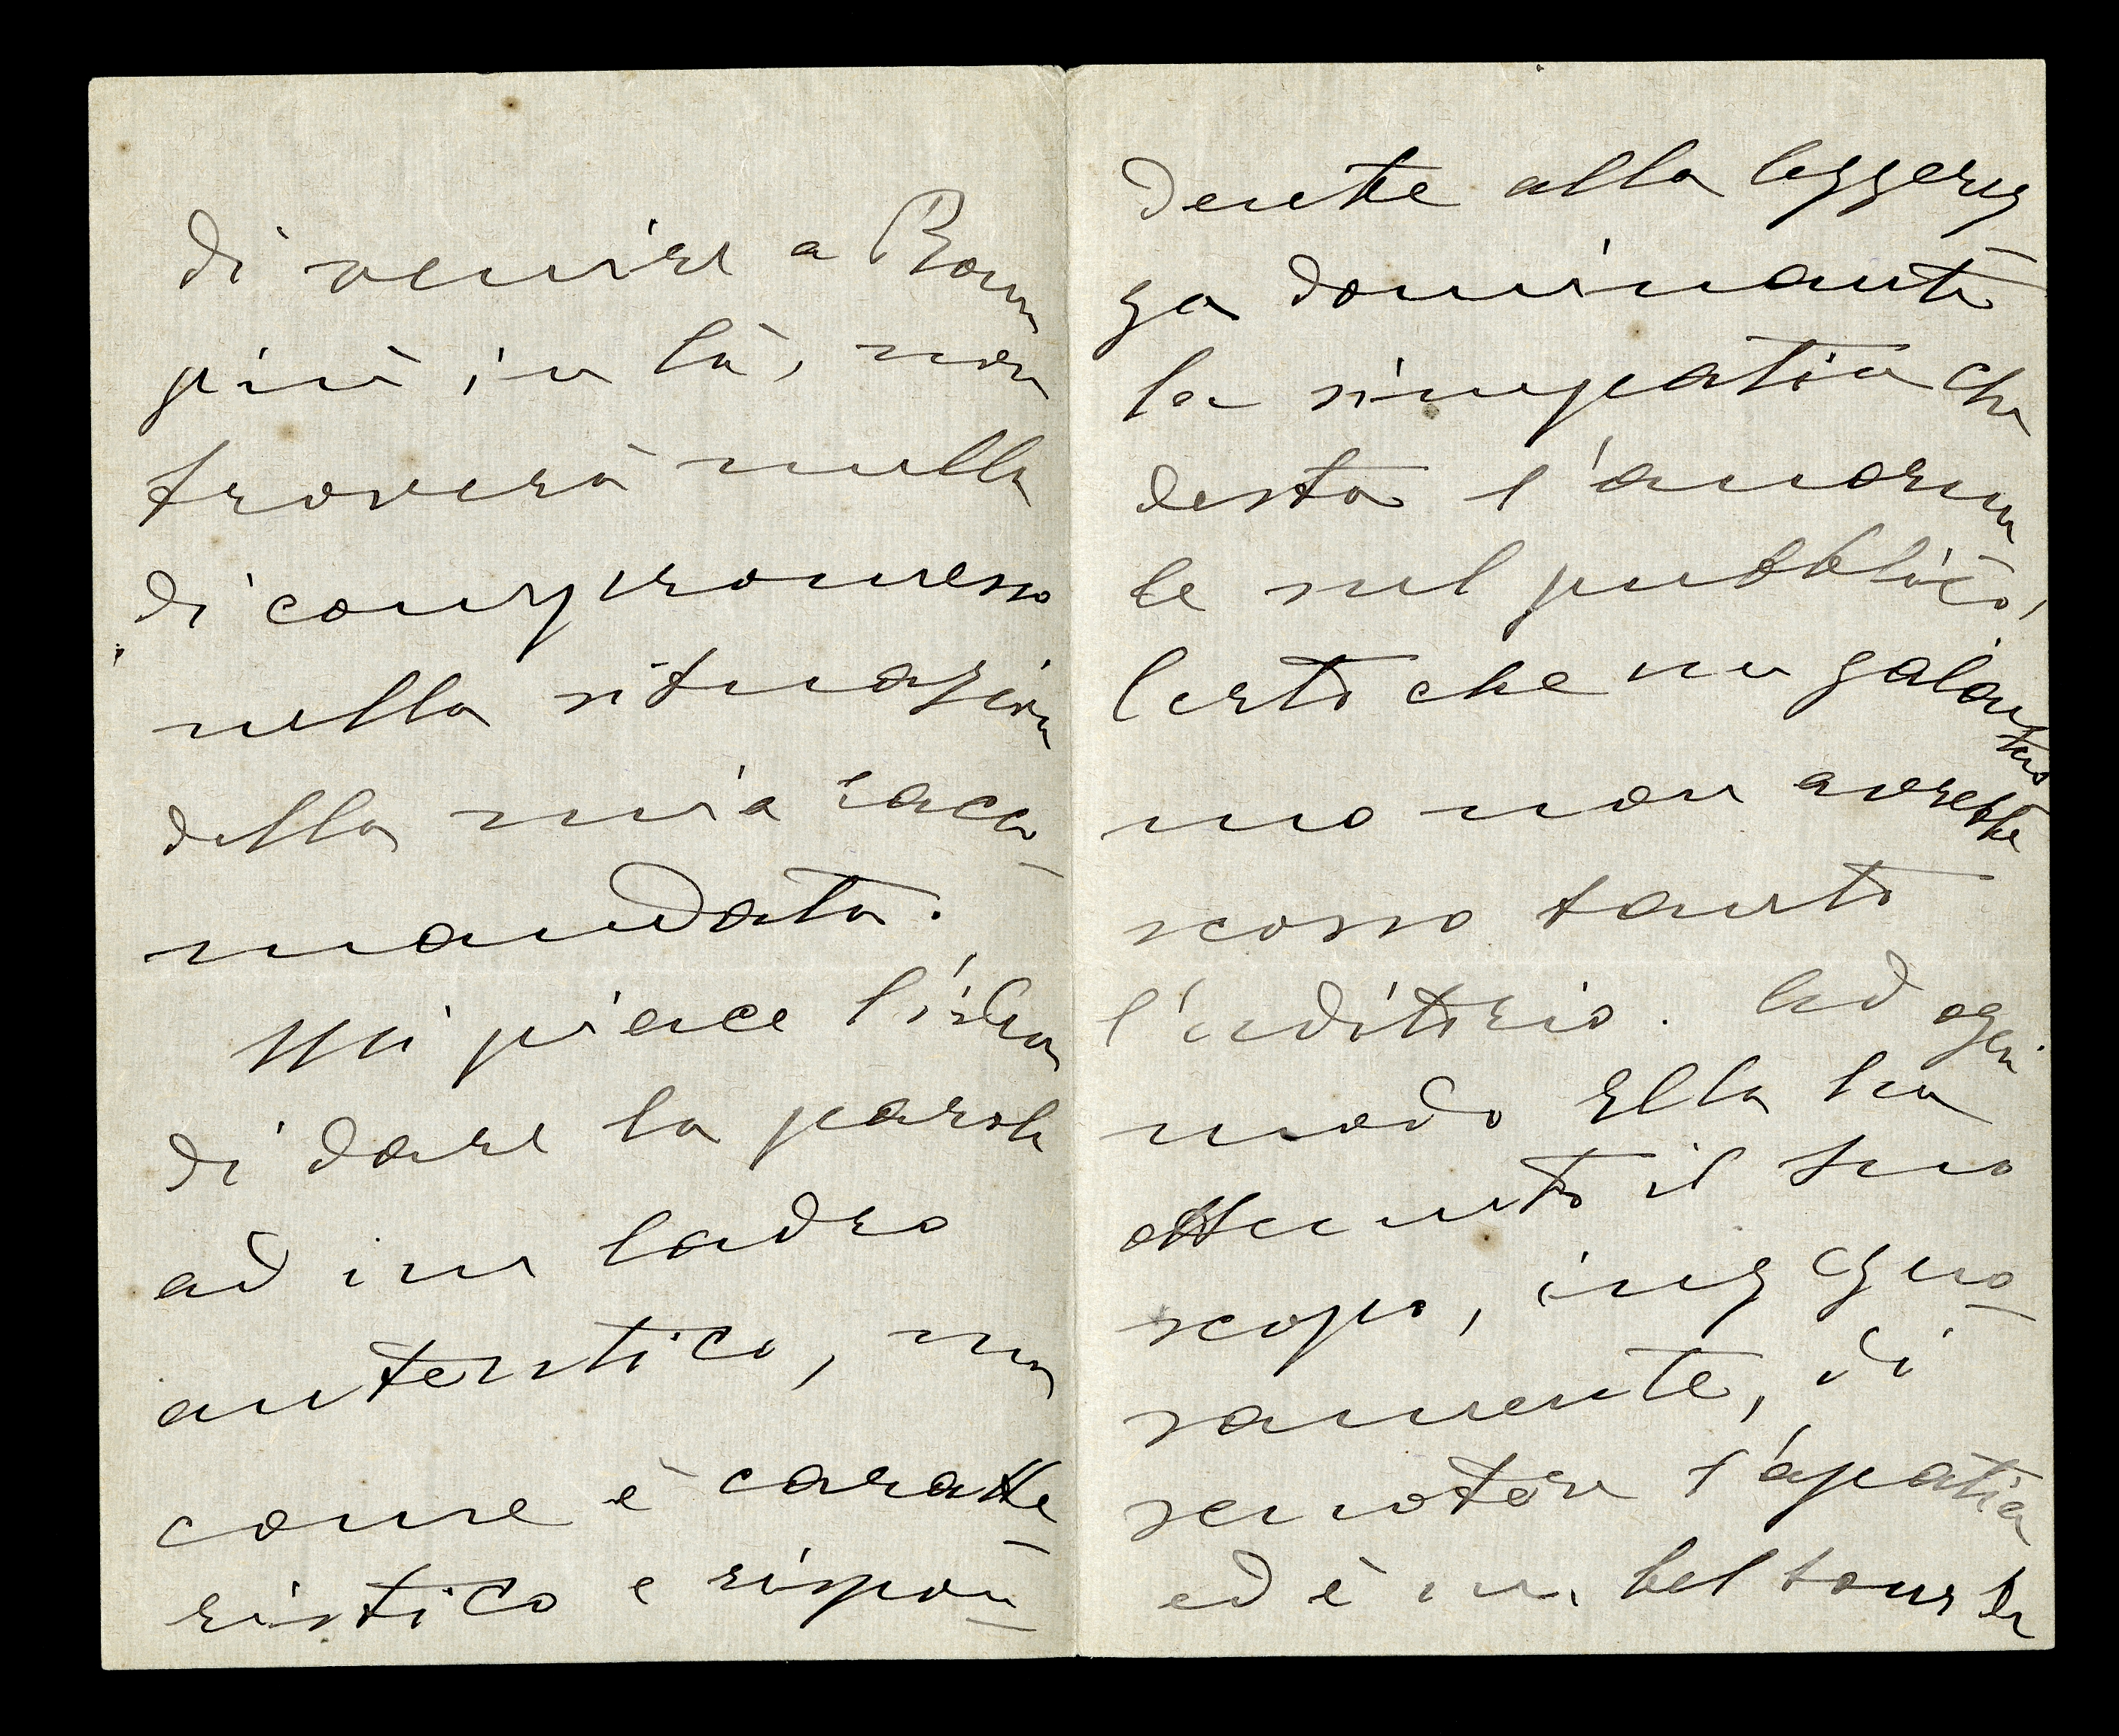 di venire a Roma
più in là, non
troverà nulla
di compromesso
nella situazione
della mia racco-
mandata.
Mi piace l'idea
di dare la parola
ad un ladro
autentico, ma
come è caratte
ristico e rispon-
dente alla leggerez
za dominante
la simpatia che
desta l'anorma
le sul pubblico,
Certo che un galantuo
mo non avrebbe
scosso tanto
l'uditorio. Ad ogni
modo Ella ha
ottenuto il suo
scopo, ingegno-
samente, di
scuotere l'apatia
ed è un bel tour de